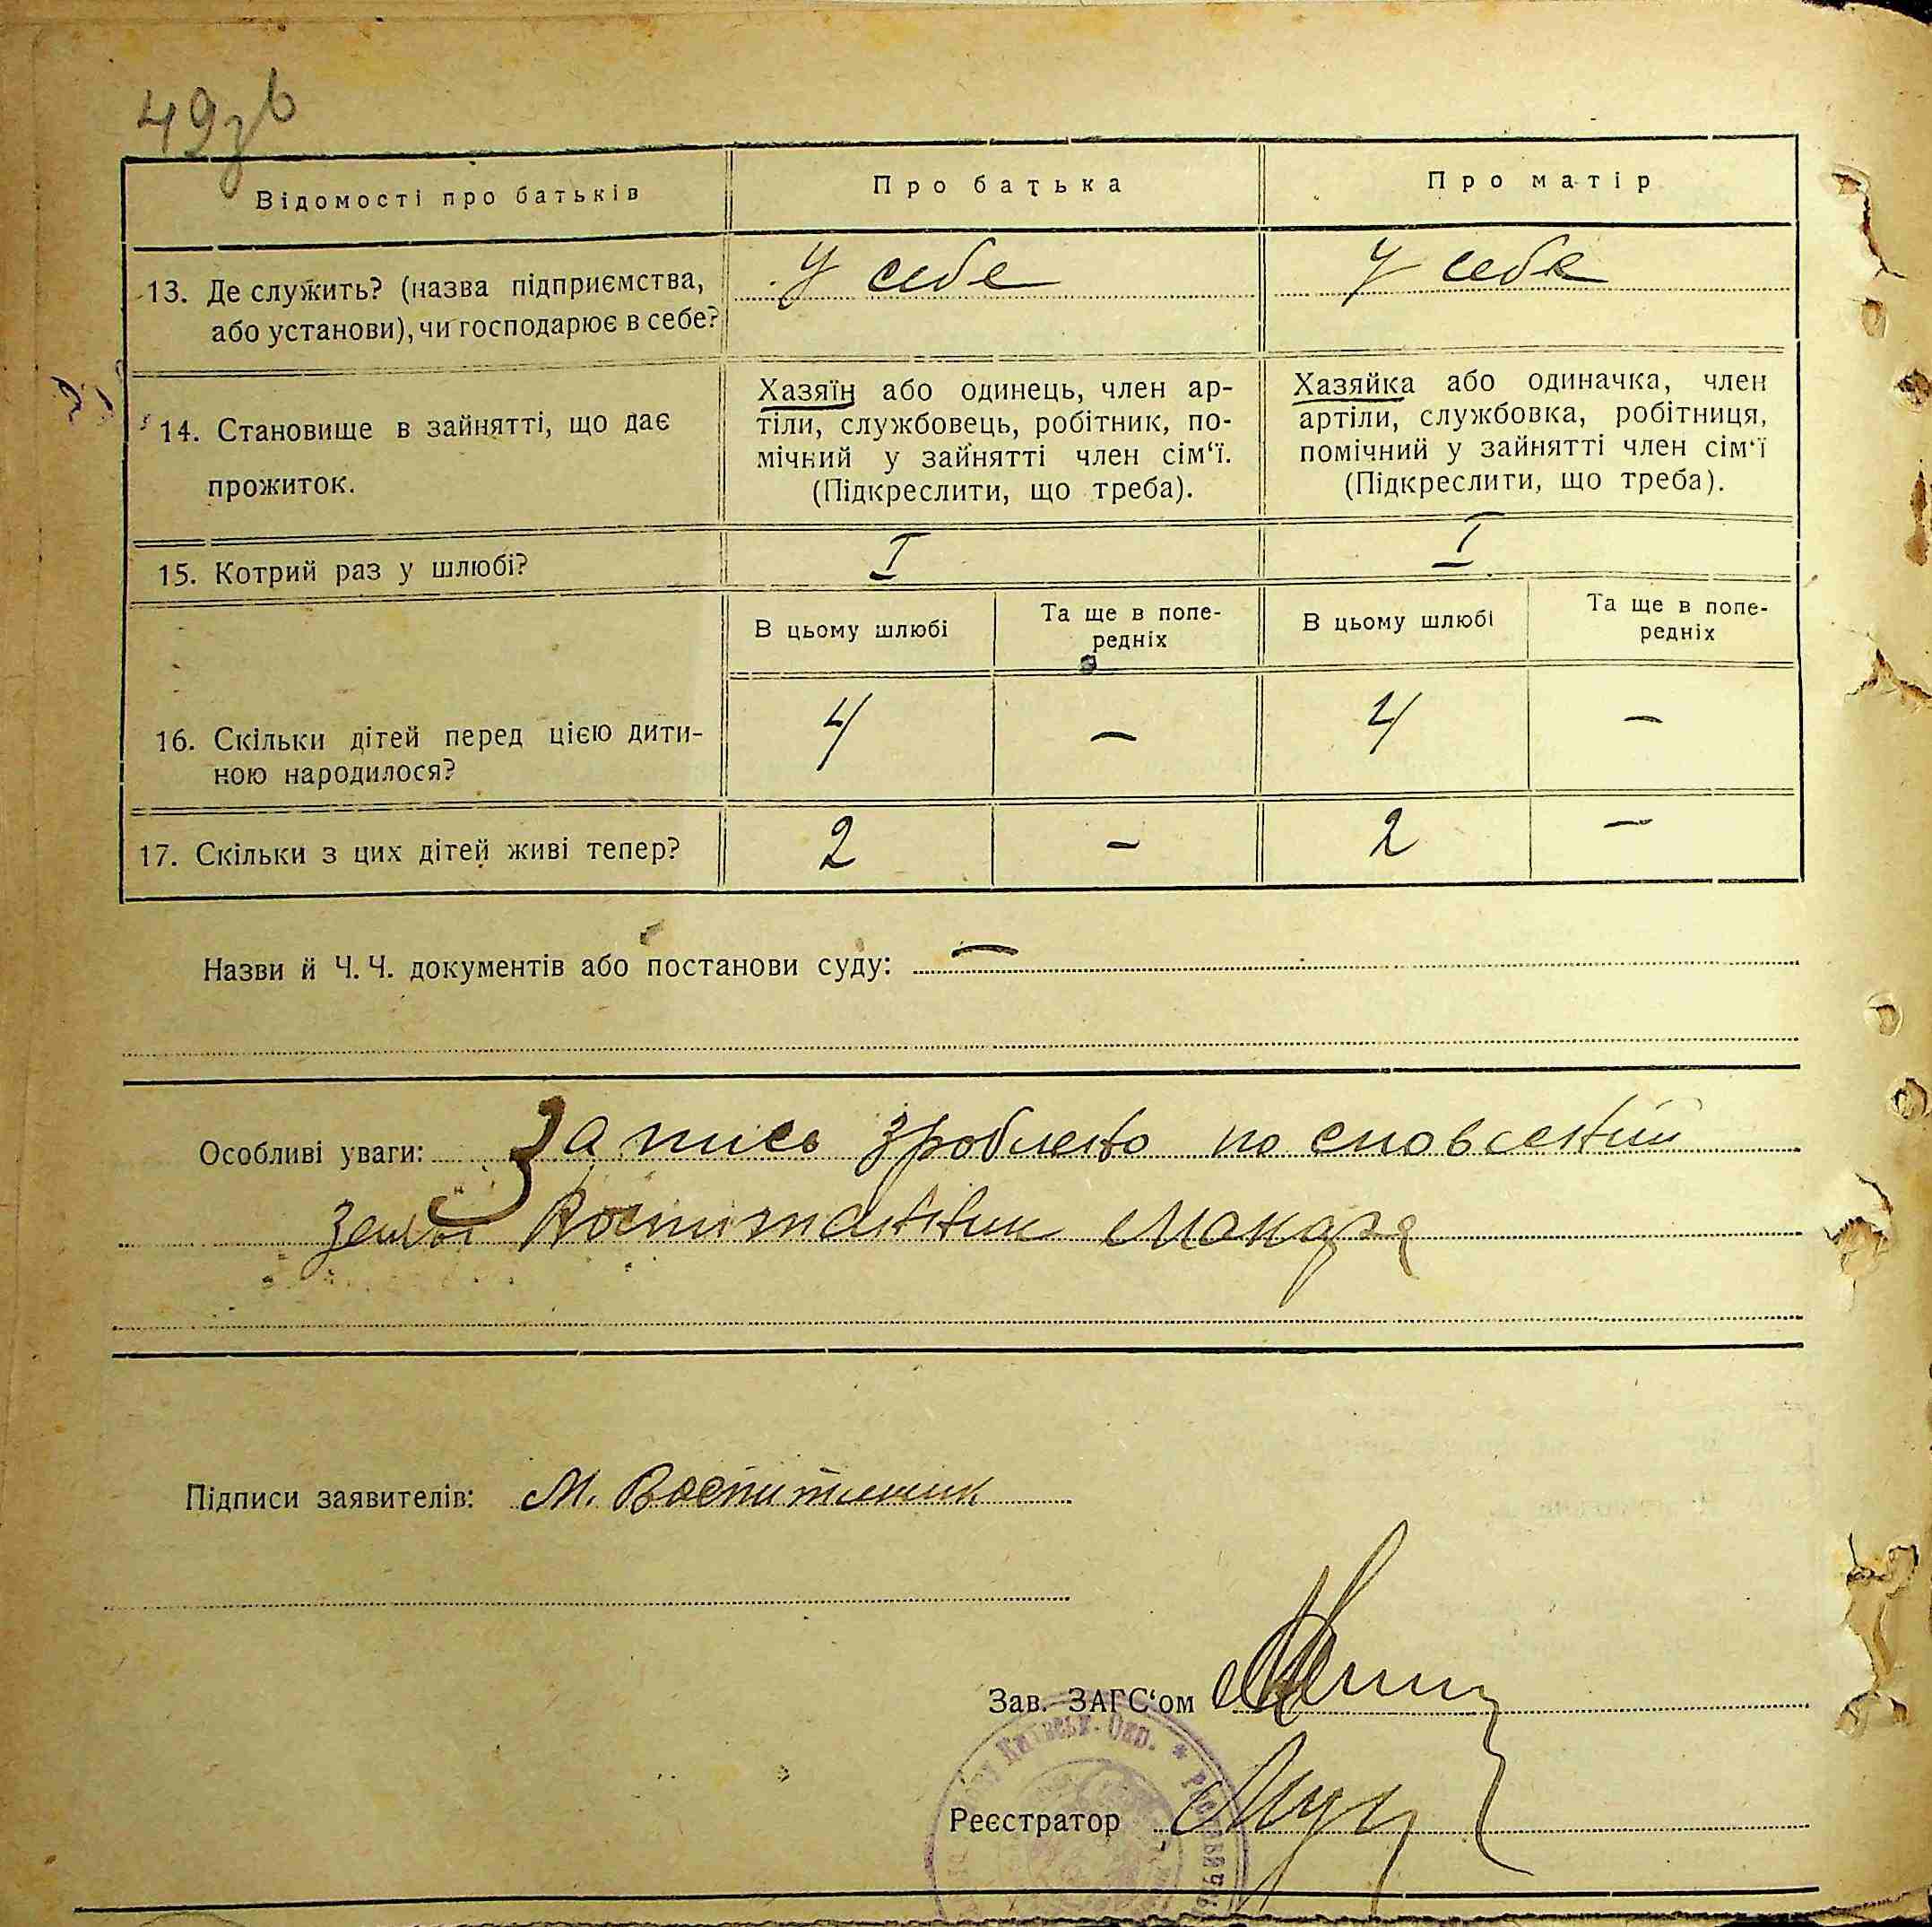 49зв
Відомості про батьків
Про батька
Про матір
13. Де служить? (назва підприємства,
або установи), чи господарює в себе?
У себе
У себе
14. Становище в зайнятті, що дає
прожиток.
Хазяїн або одинець, член ар-
тіли, службовець, робітник, по-
мічний у зайнятті член сім‘ї.
(Підкреслити, що треба).
Хазяйка або одиначка, член
артіли, службовка, робітниця,
помічний у зайнятті член сім‘ї
(Підкреслити, що треба).
15. Котрий раз у шлюбі?
I
I
В цьому шлюбі
Та ще в попе-
редніх
В цьому шлюбі
Та ще в попе-
редніх
16. Скільки дітей перед цією дити-
ною народилося?
4
—
4
—
17. Скільки з цих дітей живі тепер?
2
—
2
—
Назви й Ч. Ч. документів або постанови суду: —
Особливі уваги: Запись зроблено по
Макара
Підписи заявителів: М. Воспитаник
Зав. ЗАГС‘ом
Київськ. Окр. *
Реєстратор